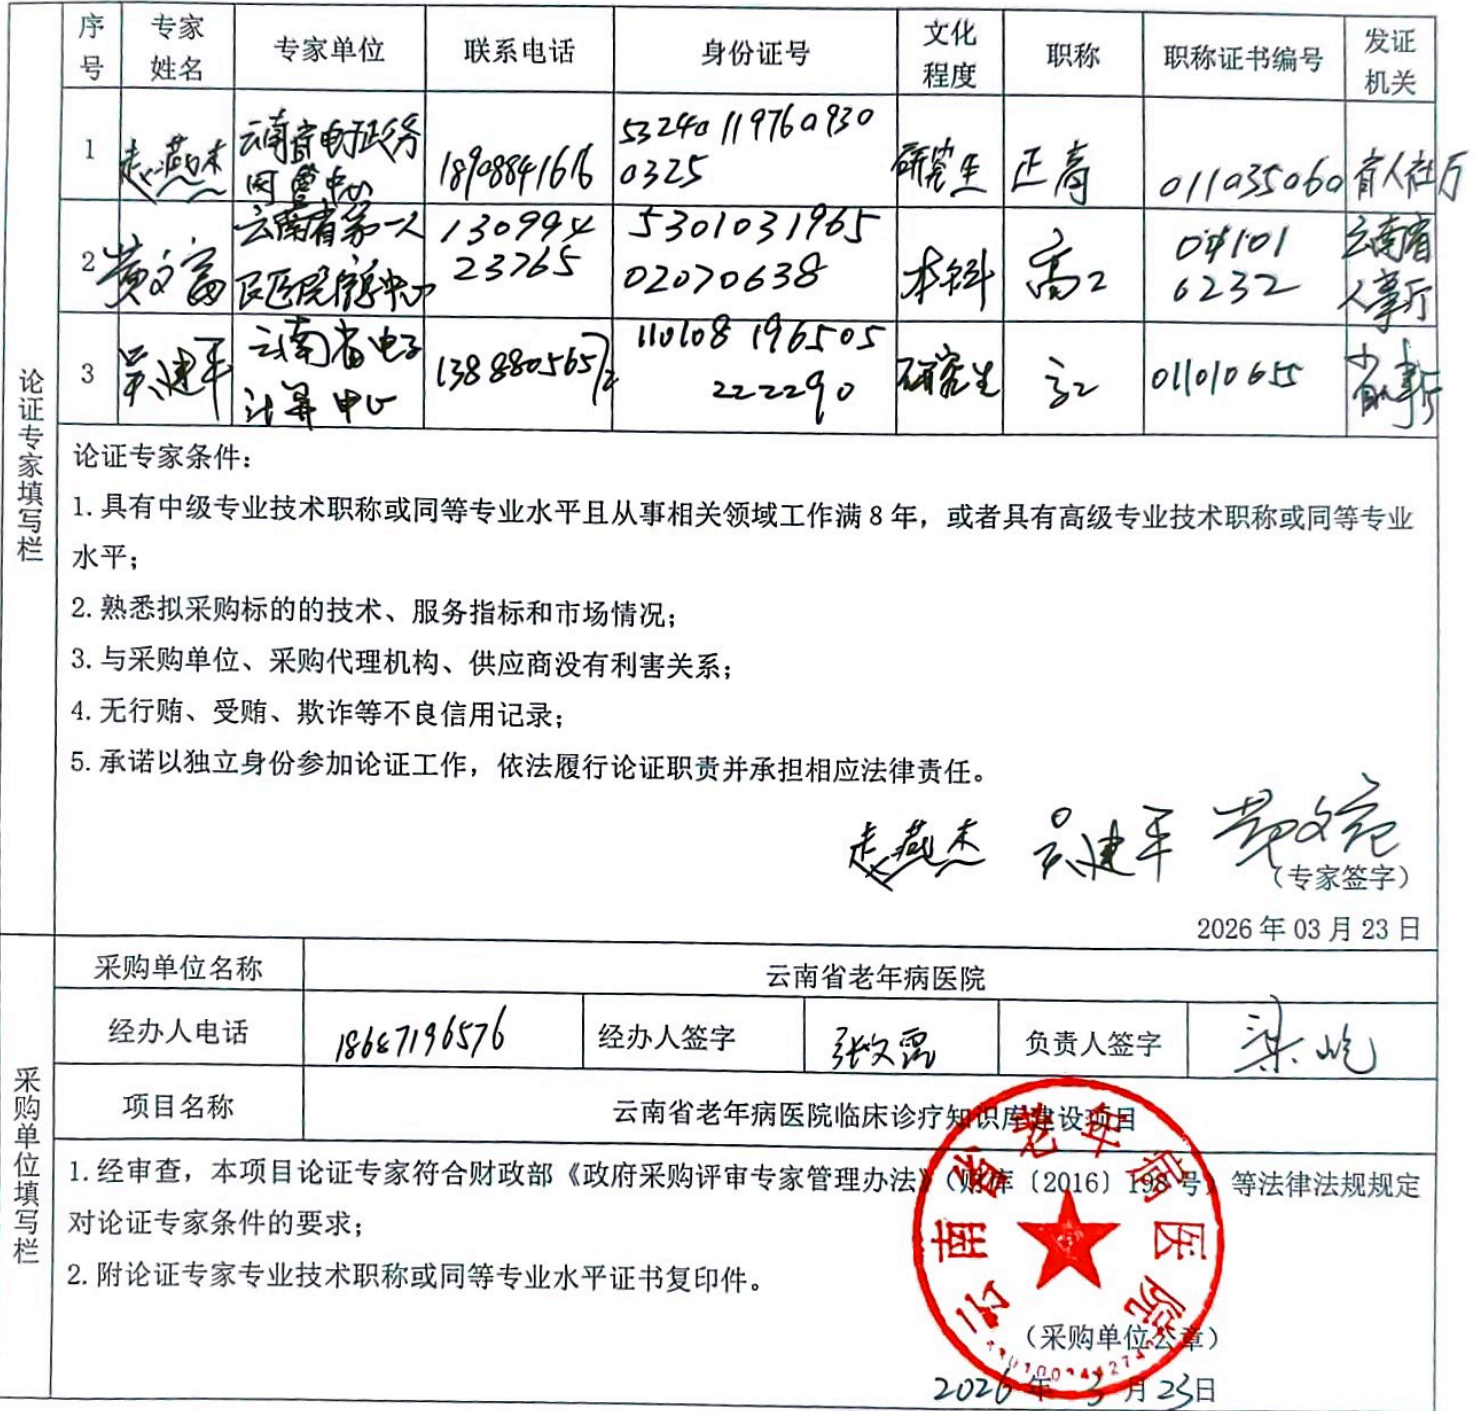 序号 专家姓名 专家单位 联系电话 身份证号 文化程度 职称 职称证书编号 发证机关
论证专家填写栏
1 赵燕杰 云南省电子政务网管中心 18908841616 532401197609300325 研究生 正高 011035060 省人社厅
2 黄文富 云南省第一人民医院信息中心 13099423765 530103196502070638 本科 高工 041016232 云南省人事厅
3 吴建平 云南省电子计算中心 13888056572 110108196505222290 研究生 高工 011010655 省人事厅
论证专家条件：
1.具有中级专业技术职称或同等专业水平且从事相关领域工作满8年，或者具有高级专业技术职称或同等专业
水平；
2.熟悉拟采购标的的技术、服务指标和市场情况；
3.与采购单位、采购代理机构、供应商没有利害关系；
4.无行贿、受贿、欺诈等不良信用记录；
5.承诺以独立身份参加论证工作，依法履行论证职责并承担相应法律责任。
赵燕杰 吴建平 黄文富
（专家签字）
2026年03月23日
采购单位填写栏
采购单位名称 云南省老年病医院
经办人电话 18687196576 经办人签字 张文霞 负责人签字 梁屹
项目名称 云南省老年病医院临床诊疗知识库建设项目
1.经审查，本项目论证专家符合财政部《政府采购评审专家管理办法》（财库〔2016〕198号）等法律法规规定
对论证专家条件的要求；
2.附论证专家专业技术职称或同等专业水平证书复印件。
云南省老年病医院
（采购单位公章）
2026年3月23日